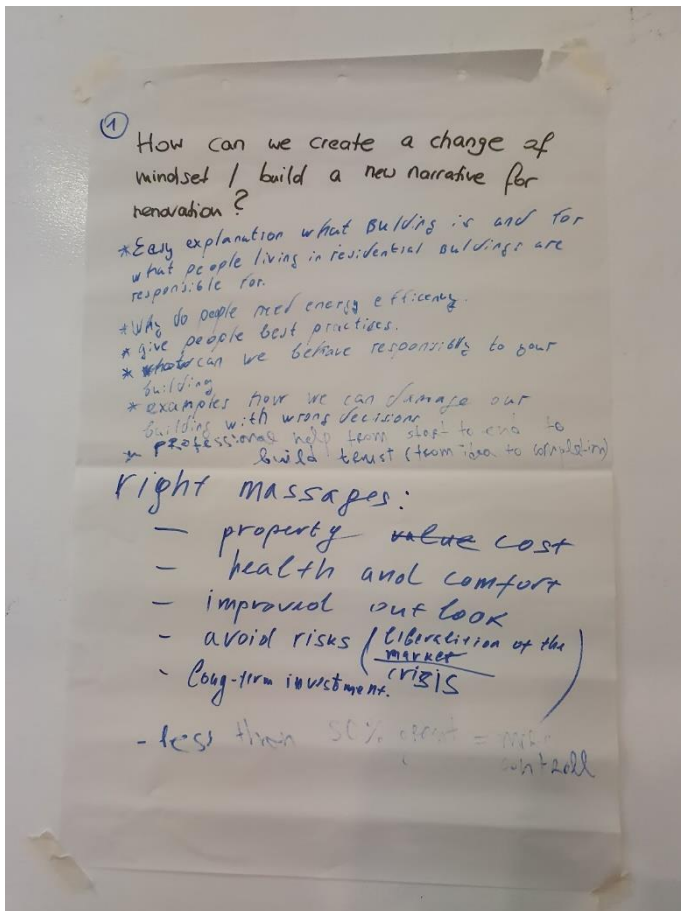 1
How can we create a change of
mindset / build a new narrative for
renovation?
* Easy explanation what Building is and for
what people living in residential buildings are
responsible for.
* Why do people need energy efficency.
* give people best practises.
* can we behave responsibly to your
building
* examples how we can damage our
building with wrong decisions
* professional help from start to end to
build trust (from idea to
right massages:
- property value cost
- health and comfort
- improved outlook
- avoid risks (liberalition of the
market
crisis)
- Long-term investment.
- less then 50% =
controll